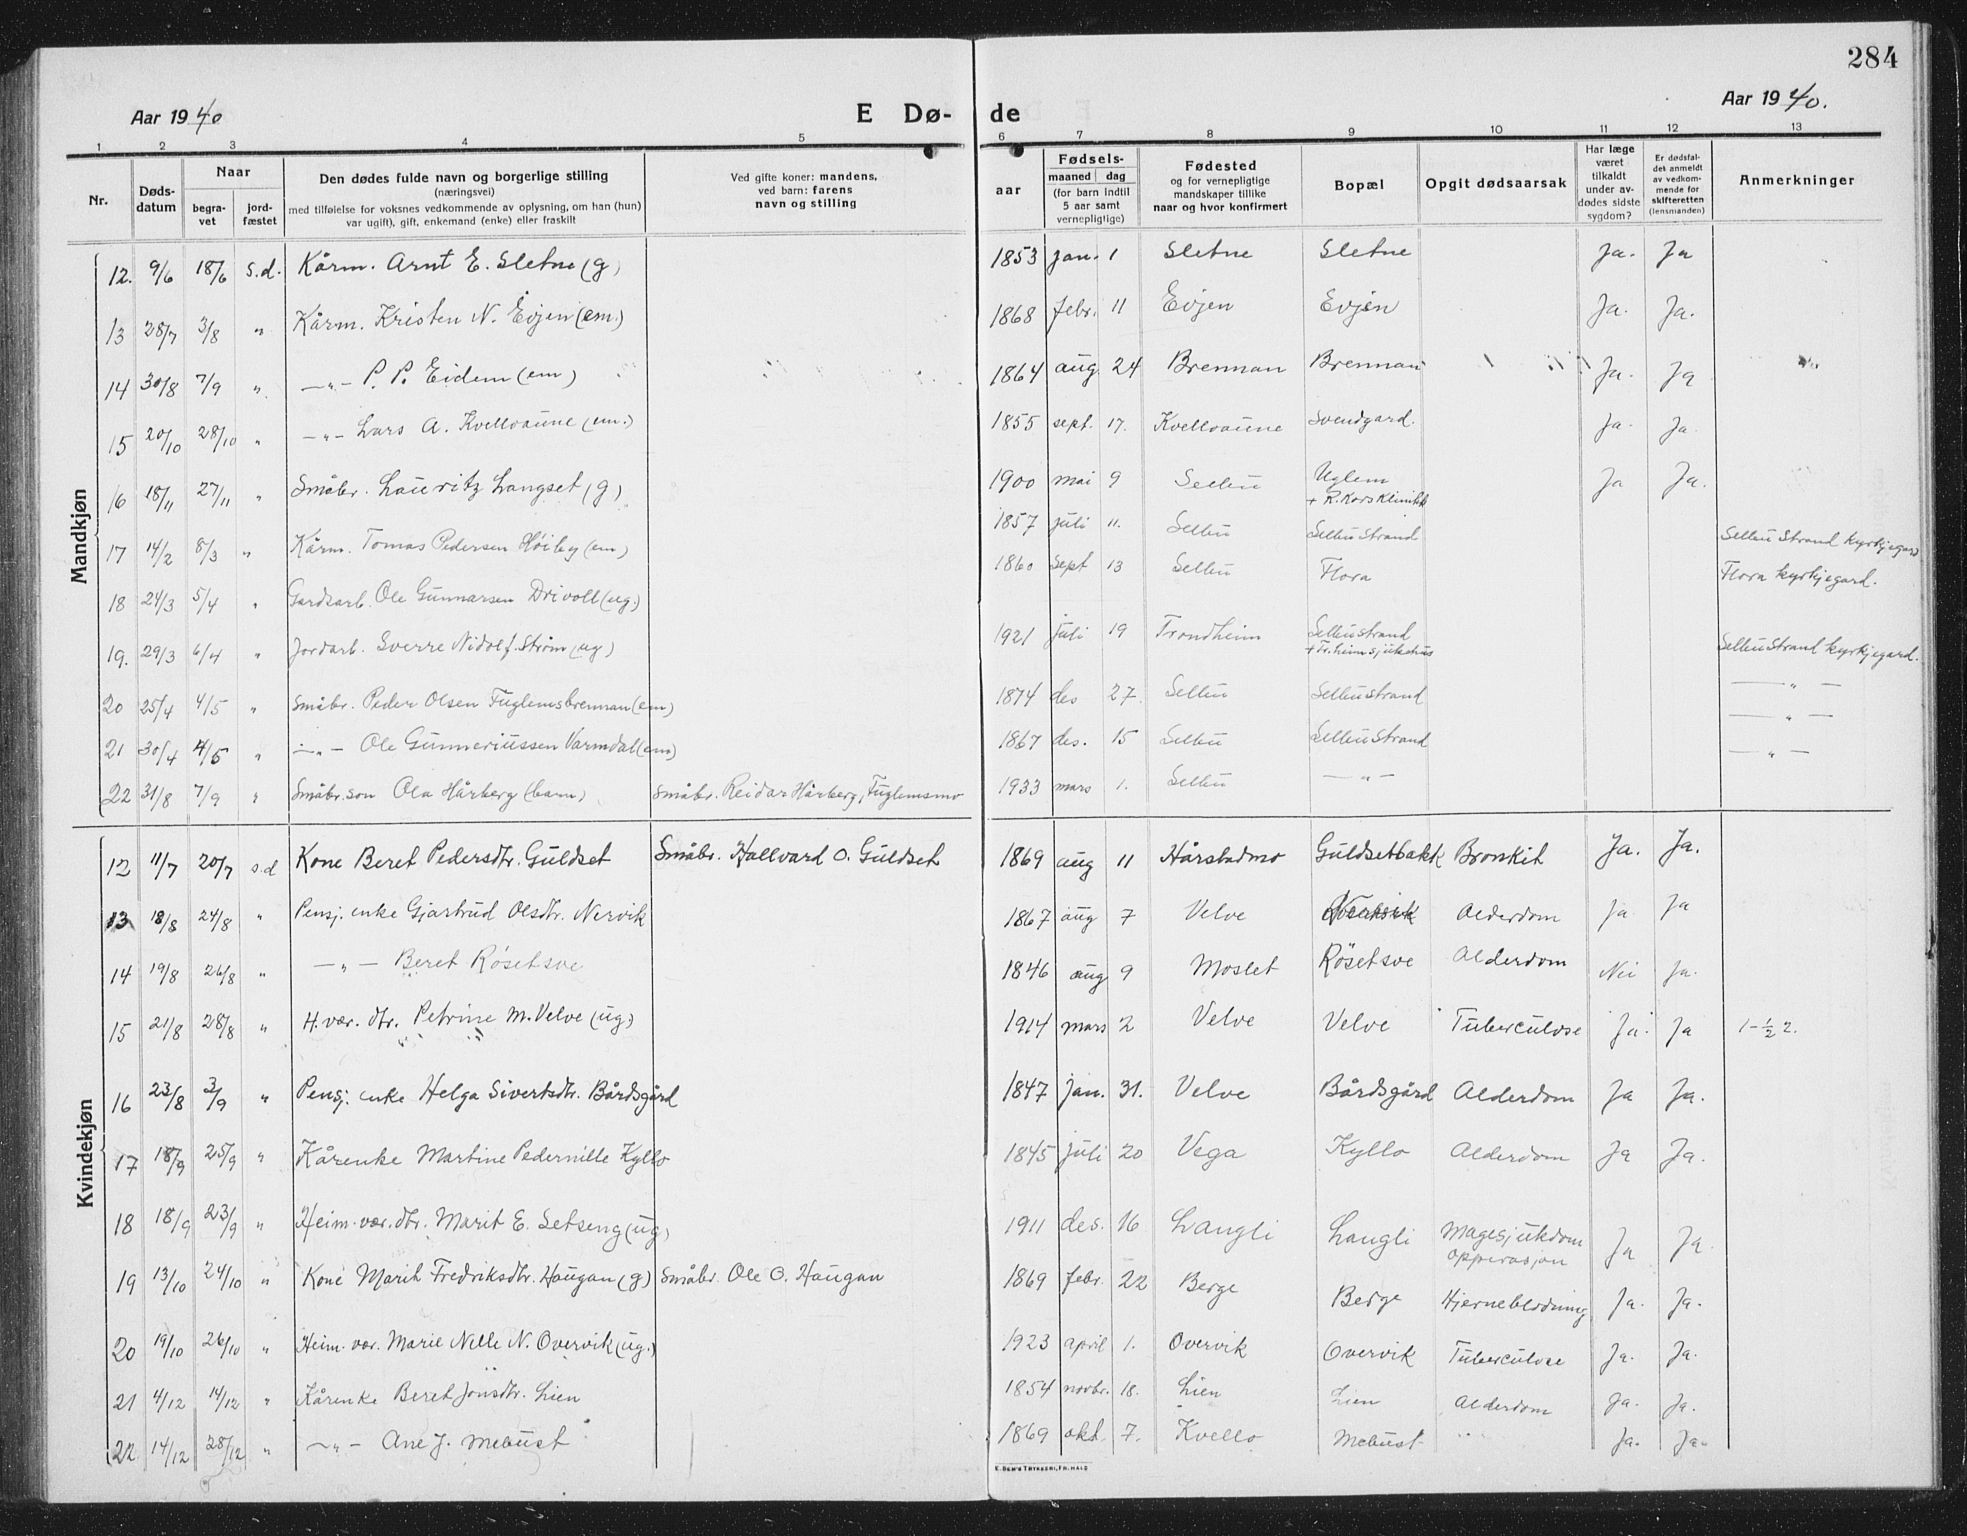 284
Aar 1940
E Dø-
de
Aar 1940.
1 2 3 4 5 6 7 8 9 10 11 12 13
Nr.
Døds-
datum
Naar
begra-
vet
jord-
fæstet
Den dødes fulde navn og borgerlige stilling
(næringsvei)
med tilføielse for voksnes vedkommende av oplysning, om han (hun)
var ugift), gift, enkemand (enke) eller fraskilt
Ved gifte koner: mandens,
ved barn: farens
navn og stilling
aar
Fødsels-
maaned dag
(for barn indtil
5 aar samt
vernepligtige)
Fødested
og for vernepligtige
mandskaper tillike
naar og hvor konfirmert
Bopæl
Opgit dødsaarsak
Har læge
været
tilkaldt
under av-
dødes sidste
sygdom?
Er dødsfal-
det anmeldt
av vedkom-
mende for
skifteretten
(lensmanden)
Anmerkninger
Mandkjøn
12. 9/6 18/6 s.d. Kårm. Arnt E. Sletne (g) 1853 jan. 1 Sletne Sletne Ja. Ja
13 28/7 3/8 " Kårm. Kristen N. Evjen (em.) 1868 febr. 11 Evjen Evjen Ja. Ja.
14 30/8 7/9 " —"— P. P. Eidem (em) 1864 aug. 24 Brennan Brennan Ja. Ja
15 20/10 28/10 " —"— Lars A. Kvelloaune (em.) 1855 sept. 17. Kvelloaune Svendgard. Ja. Ja.
16 18/11 27/11 " Småbr. Lauritz Langset (g) 1900 mai 9 Selbu Uglem
+ R. Kors Klinikk Ja Ja.
17 14/2 8/3 " Kårm. Tomas Pedersen Høiby (em) 1857 juli 11. Selbu Selbustrand Selbustrand kyrkjegard
18 24/3 5/4 " Gardsarb. Ole Gunnarsen Drivoll (ug.) 1860 sept 13 Selbu Flora Flora kyrkjegard.
19. 29/3 6/4 " Jordarb. Sverre Nidolf Strøm (ug) 1921 juli 19 Trondheim Selbustrand
+ Tr.heim sjukehus Selbustrand kyrkjegard.
20 25/4 4/5 " Småbr. Peder Olsen Fuglemsbrennan (em) 1874 des 27. Selbu Selbustrand —"—
21 30/4 4/5 " —"— Ole Gunneriussen Varmdal (em) 1867 des. 15 Selbu Selbustrand —"—
22 31/8 7/9 " Småbr.son Ola Hårberg (barn) Småbr. Reidar Hårberg, Fuglemsmo 1933 mars 1. Selbu —"— —"—
Kvindekjøn
12 11/7 20/7 s.d Kone Beret Pedersdtr. Guldset Småbr. Hallvard O. Guldset 1869 aug 11 Hårstadmo Guldsetbakk Bronkit Ja. Ja.
13 18/8 24/8 " Pensj. enke Gjartrud Olsdtr. Nervik 1867 aug 7 Velve Alderdom Ja Ja
14 19/8 26/8 " —"— Beret Røsetsve 1846 aug 9 Moslet Røsetsve Alderdom Nei Ja.
15 21/8 28/8 " H.vær. dtr. Petrine M. Velve (ug.) 1914 mars 2 Velve Velve Tuberculose Ja. Ja 1-½ 2.
16 23/8 3/9 " Pensj. enke Helga Sivertsdtr. Bårdsgård 1847 jan. 31. Velve Bårdsgård Alderdom Ja Ja.
17 18/9 25/9 " Kårenke Martine Pedernille Kyllo 1845 juli 20 Vega Kyllo Alderdom Ja Ja.
18 18/9 23/9 " Heim.vær.dtr. Marit E. Setseng (ug) 1911 des. 16 Langli Langli Magesjukdom
opperasjon Ja Ja.
19 13/10 24/10 " Kone Marit Fredriksdtr. Haugan (g) Småbr. Ole O. Haugan 1869 febr. 22 Berge Berge Hjerneblødning Ja. Ja.
20 19/10 26/10 " Heim.vær. Marie Nelle N. Overvik (ug.) 1923 april 1. Overvik Overvik Tuberculose Ja. Ja.
21 4/12 14/12 " Kårenke Beret Jonsdtr. Lien 1854 novbr. 18. Lien Lien Alderdom Ja. Ja.
22 14/12 28/12 " —"— Ane J. Mebust 1869 okt. 7. Kvello Mebust " Ja. Ja.
E. BEM'S TRYKKERI, FR. HALD